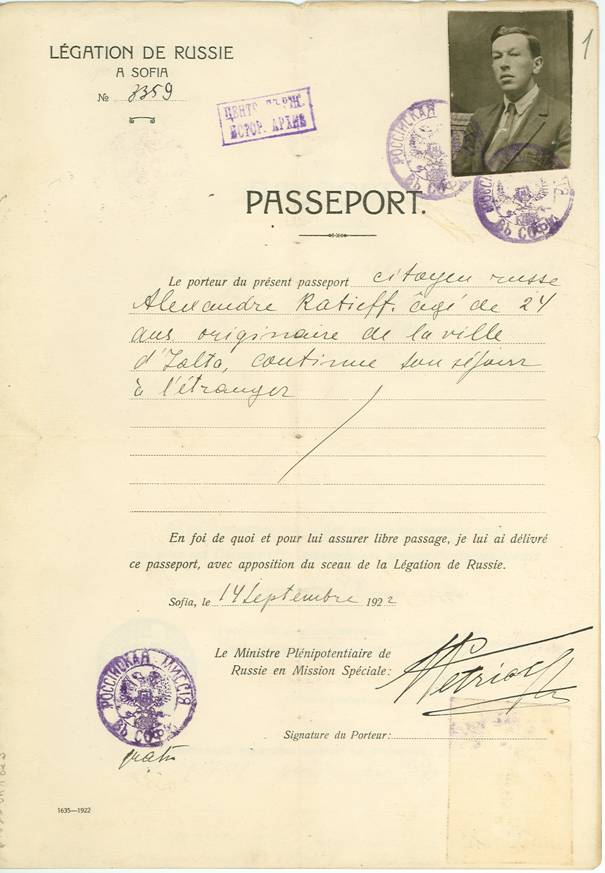 LÉGATION DE RUSSIE
A SOFIA
№ 3359
1
ЦЕНТР. ДЪРЖ.
ИСТОР. АРХИВ
РОССІЙСКАЯ
ВЪ СОФІИ
ВЪ СОФІИ
PASSEPORT.
Le porteur du présent passeport citoyen russe
Alexandre Ratieff. âgé de 24
ans originaire de la ville
d'Ialta, continue son séjour
à l'étranger
En foi de quoi et pour lui assurer libre passage, je lui ai délivré
ce passeport, avec apposition du sceau de la Légation de Russie.
Sofia, le 14 Septembre 1922
Le Ministre Plénipotentiaire de
Russie en Mission Spéciale:
РОССІЙСКАЯ МИССІЯ
ВЪ СОФІИ
Signature du Porteur:
gratis
1635—1922